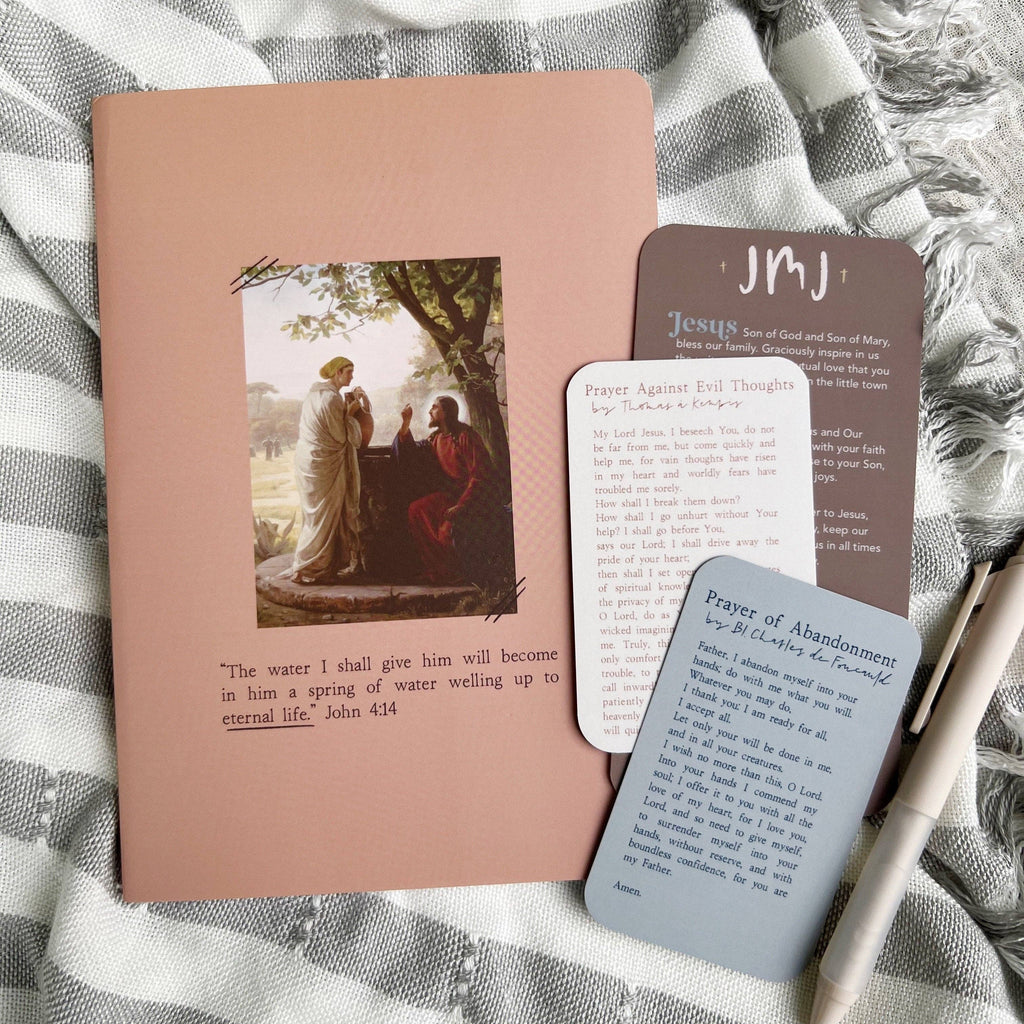 “The water I shall give him will become
in him a spring of water welling up to
eternal life.” John 4:14
JMJ
Jesus Son of God and Son of Mary,
bless our family. Graciously inspire in us
mutual love that you
in the little town
and Our
with your faith
to your Son,
joys.
to Jesus,
keep our
us in all times
Prayer Against Evil Thoughts
by Thomas à Kempis
My Lord Jesus, I beseech You, do not
be far from me, but come quickly and
help me, for vain thoughts have risen
in my heart and worldly fears have
troubled me sorely.
How shall I break them down?
How shall I go unhurt without Your
help? I shall go before You,
says our Lord; I shall drive away the
pride of your heart;
then shall I set
of spiritual
the privacy of my
O Lord, do as
wicked
me. Truly,
only
trouble, to
call
patiently
heavenly
will
Prayer of Abandonment
by Bl Charles de Foucauld
Father, I abandon myself into your
hands; do with me what you will.
Whatever you may do,
I thank you: I am ready for all,
I accept all.
Let only your will be done in me,
and in all your creatures.
I wish no more than this, O Lord.
Into your hands I commend my
soul; I offer it to you with all the
love of my heart, for I love you,
Lord, and so need to give myself,
to surrender myself into your
hands, without reserve, and with
boundless confidence, for you are
my Father.
Amen.